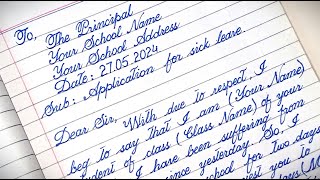 To,
The Principal
Your School Name
Your School Address
Date: 27.05.2024
Sub: Application for sick leave.
Dear Sir, With due to respect, I
beg to say that I am (Your Name)
student of class (Class Name) of your
I have been suffering from
since yesterday. So, I
school for two days
you to